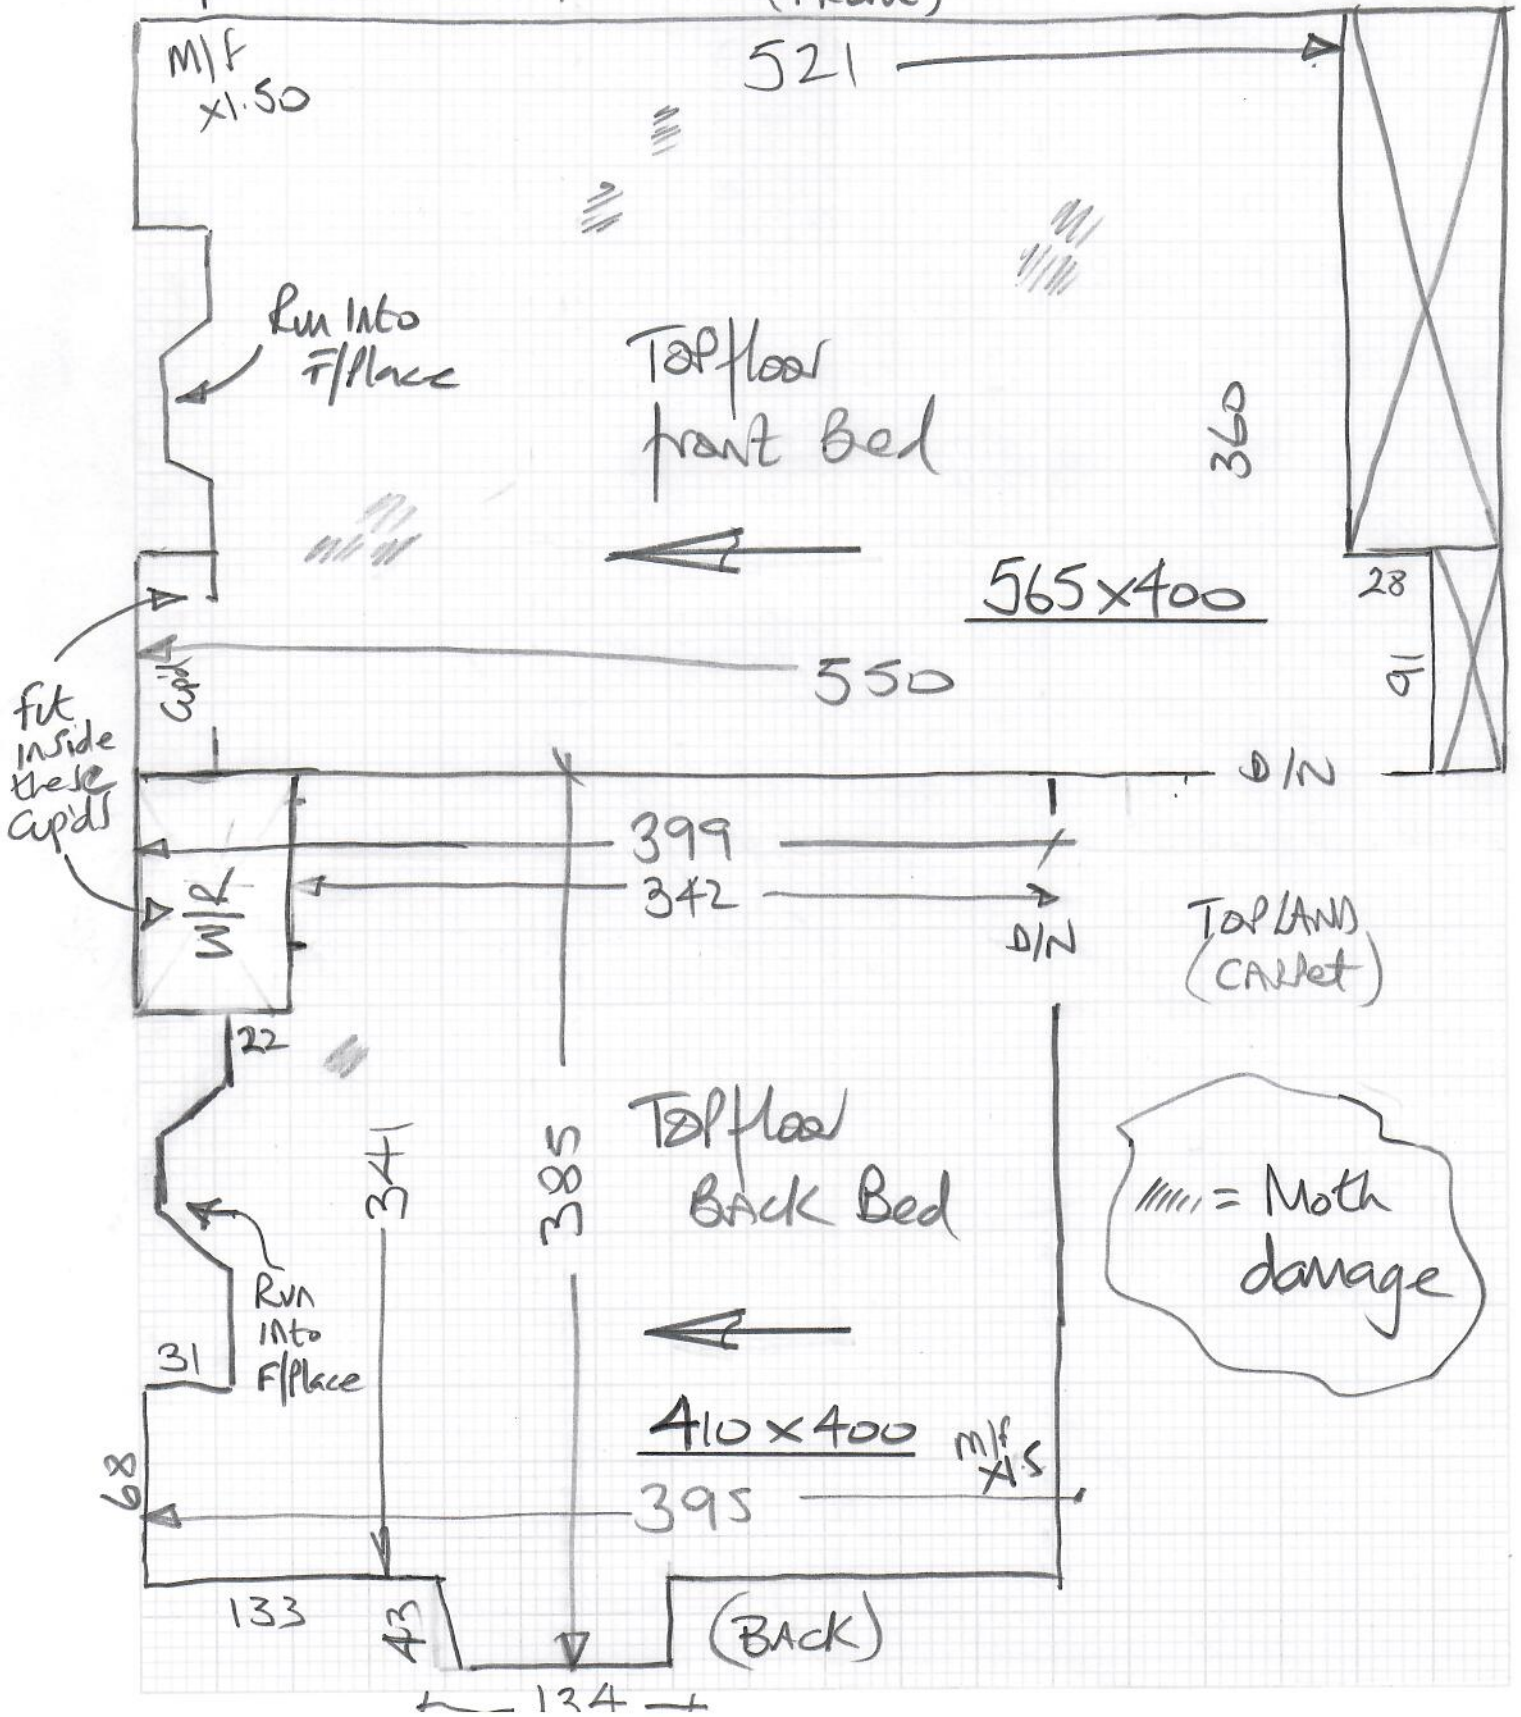 (FRONT)
M/f
x1.50
521
Run Into
F/Place
Top floor
front Bed
360
565x400
28
91
550
Cup'd
fit
inside
these
Cup'ds
D/N
399
342
W/R
D/N
TOP LAND
(CARPet)
22
341
385
Top floor
BACK Bed
= Moth
damage
Run
Into
F/Place
31
410 x 400
M/f
x1.5
68
395
133
43
(BACK)
134